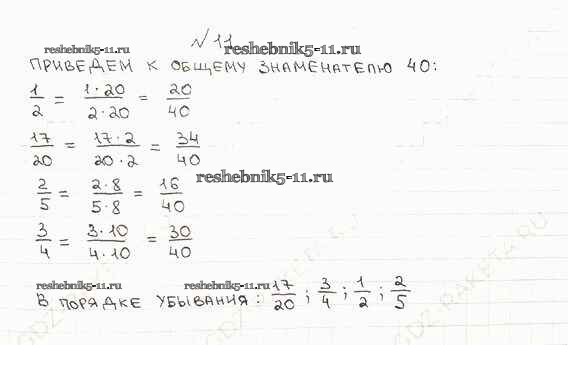 №11
reshebnik5-11.ru reshebnik5-11.ru
ПРИВЕДЕМ К ОБЩЕМУ ЗНАМЕНАТЕЛЮ 40:
1/2 = 1·20/2·20 = 20/40
17/20 = 17·2/20·2 = 34/40
reshebnik5-11.ru
2/5 = 2·8/5·8 = 16/40
3/4 = 3·10/4·10 = 30/40
reshebnik5-11.ru reshebnik5-11.ru
В ПОРЯДКЕ УБЫВАНИЯ: 17/20; 3/4; 1/2; 2/5
GDZ-RAKETA.RU